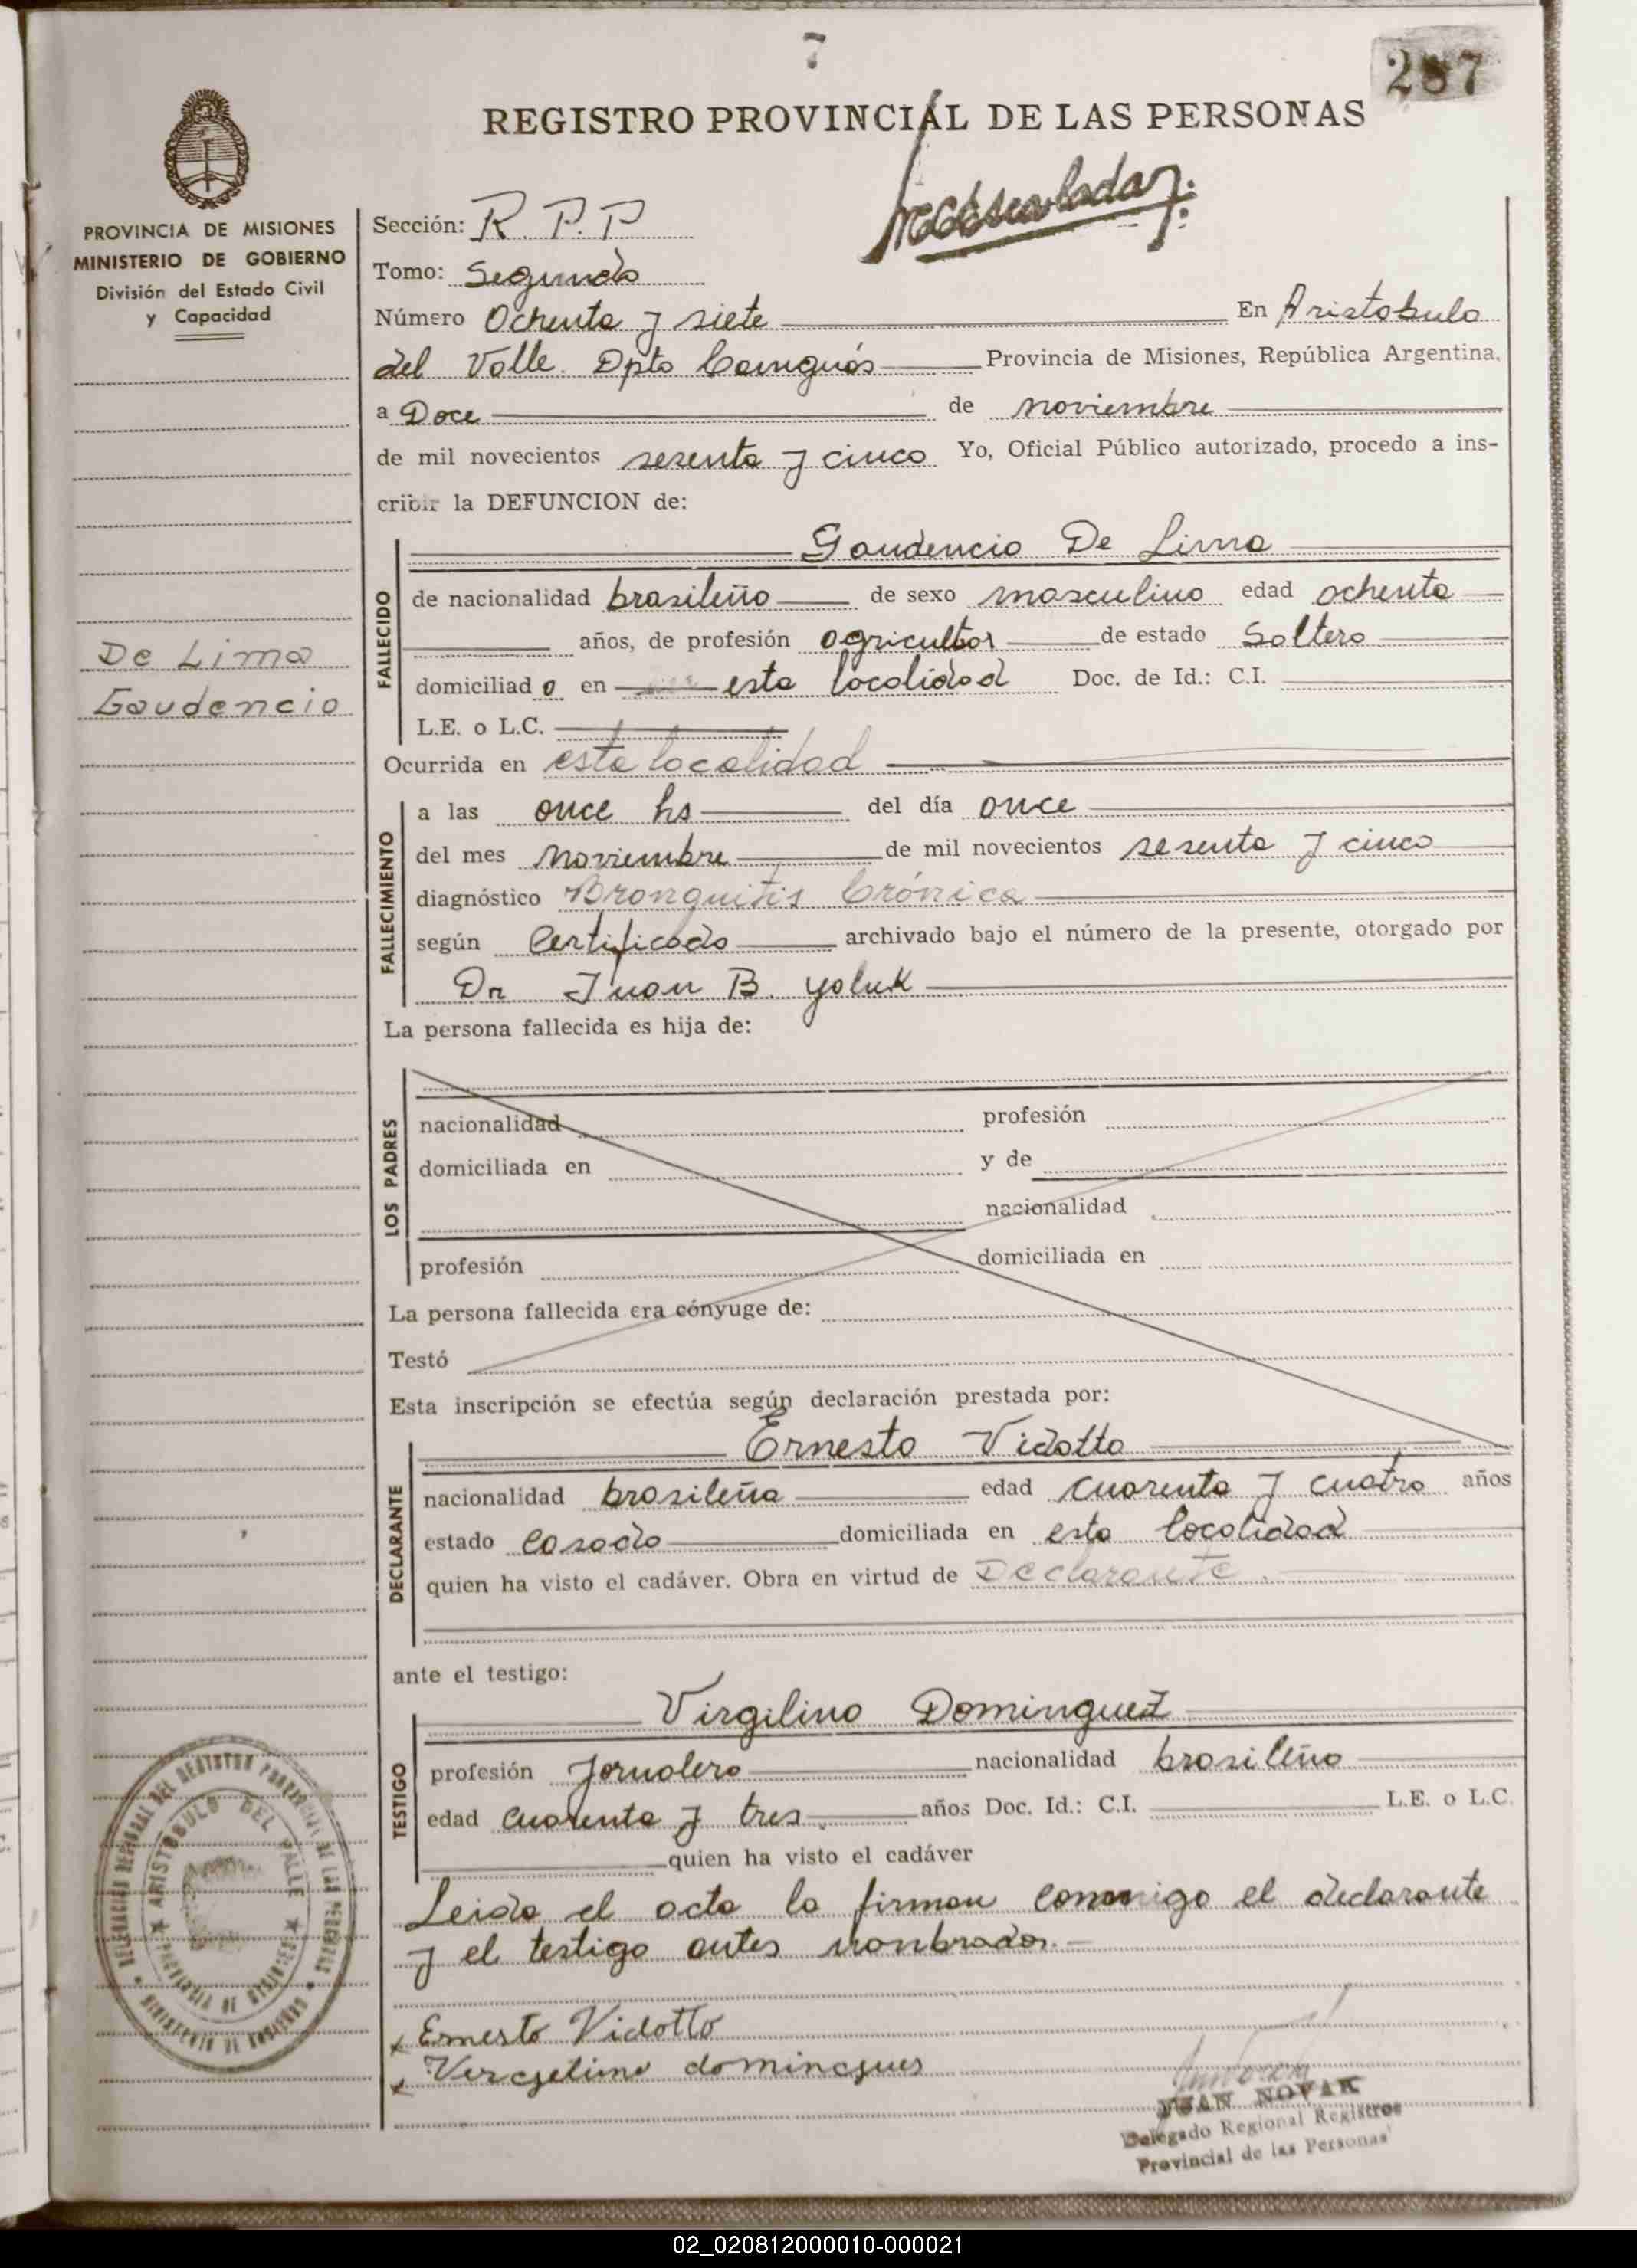 7
287
REGISTRO PROVINCIAL DE LAS PERSONAS
PROVINCIA DE MISIONES
MINISTERIO DE GOBIERNO
División del Estado Civil
y Capacidad
De Lima
Gaudencio
Sección: R. P. P
Tomo: Segundo
Número Ochenta y siete En Aristobulo
del Valle. Dpto Cainguás Provincia de Misiones, República Argentina,
a Doce de noviembre
de mil novecientos sesenta y cinco Yo, Oficial Público autorizado, procedo a ins-
cribir la DEFUNCION de:
FALLECIDO
Gaudencio De Lima
de nacionalidad brasileño de sexo masculino edad ochenta
años, de profesión agricultor de estado Soltero
domiciliado en esta localidad Doc. de Id.: C.I.
L.E. o L.C.
Ocurrida en esta localidad
FALLECIMIENTO
a las once hs del día once
del mes noviembre de mil novecientos sesenta y cinco
diagnóstico Bronquitis Crónica
según Certificado archivado bajo el número de la presente, otorgado por
Dr Juan B. Yaluk
La persona fallecida es hija de:
LOS PADRES
nacionalidad profesión
domiciliada en y de
nacionalidad
profesión domiciliada en
La persona fallecida era cónyuge de:
Testó
Esta inscripción se efectúa según declaración prestada por:
DECLARANTE
Ernesto Vidotto
nacionalidad brasileña edad cuarenta y cuatro años
estado Casado domiciliada en esta localidad
quien ha visto el cadáver. Obra en virtud de Declarante.
ante el testigo:
TESTIGO
Virgilino Dominguez
profesión Jornalero nacionalidad brasileña
edad cuarenta y tres años Doc. Id.: C.I. L.E. o L.C.
quien ha visto el cadáver
Leida el acta la firman conmigo el declarante
y el testigo antes nonbrados.
x Ernesto Vidotto
x Vergelimo domingues
JUAN NOVAK
Delegado Regional Registros
Provincial de las Personas
ARISTOBULO DEL VALLE
02_020812000010-000021